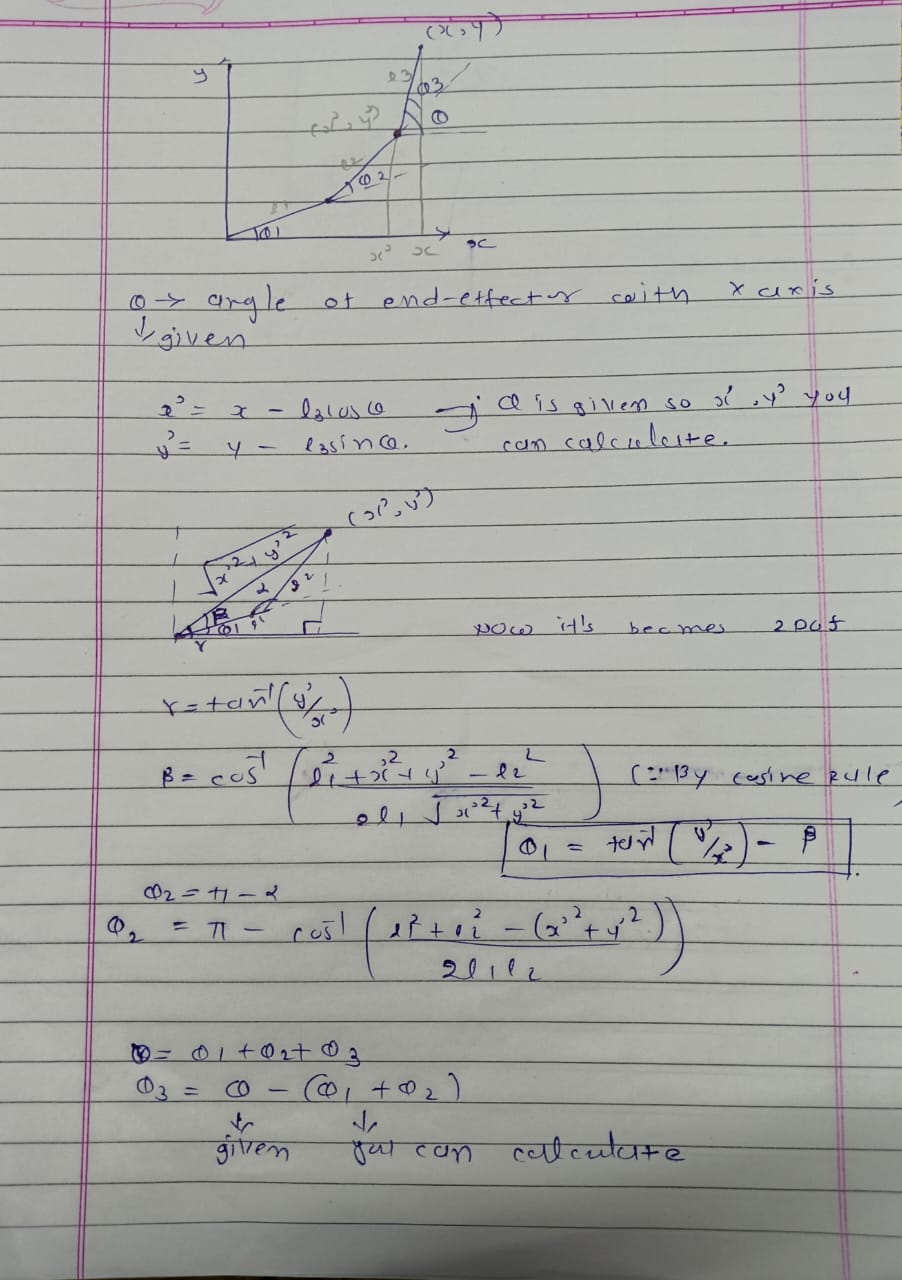 (x, y)
y
l3
θ3
(x', y')
θ
l2
θ2
l1
θ1
x' x x
θ → angle of end-effector with x axis
↓ given
x' = x - l3cosθ → θ is given so x', y' you
y' = y - l3sinθ. can calculate.
(x', y')
√x'²+y'²
α l2
β
θ1 l1
γ
Now it's becmes 2 DOF
γ = tan⁻¹(y'/x')
β = cos⁻¹ (l1² + x'² + y'² - l2² / 2l1 √x'² + y'²) (∵ By cosine rule
θ1 = tan⁻¹ (y'/x') - β
θ2 = π - α
θ2 = π - cos⁻¹ (l1² + l2² - (x'² + y'²) / 2l1l2)
θ = θ1 + θ2 + θ3
θ3 = θ - (θ1 + θ2)
↓ ↓
given you can calculate